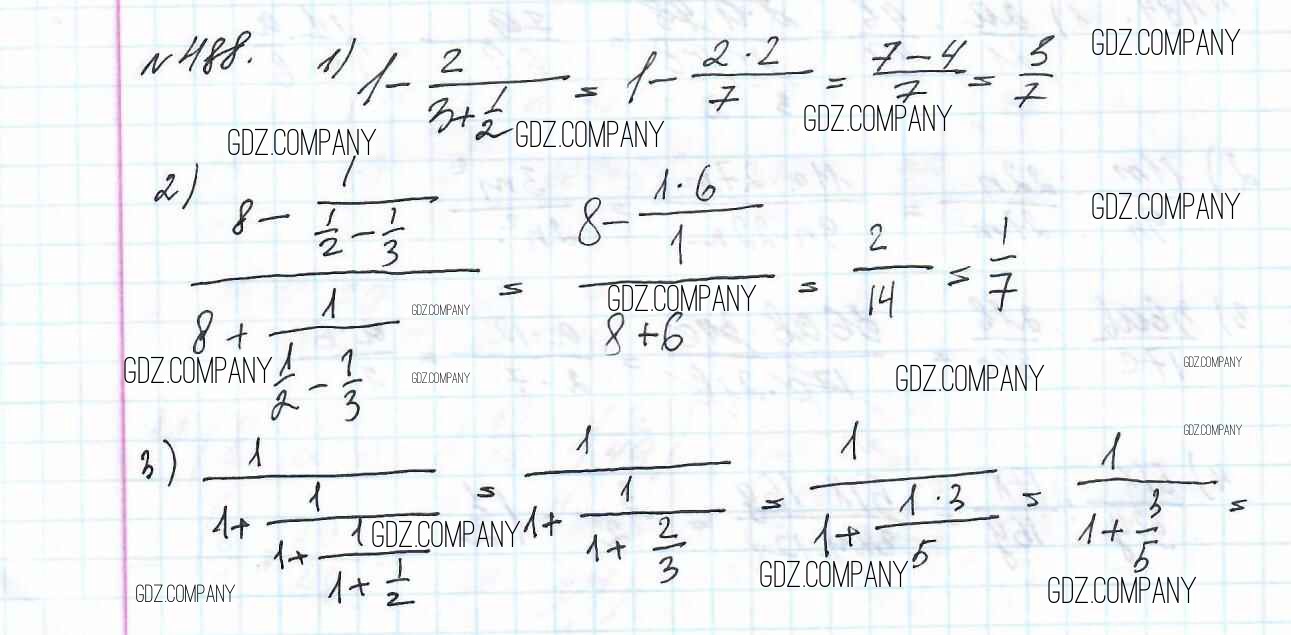 №488. 1) 1 - 2/(3 + 1/2) = 1 - (2·2)/7 = (7-4)/7 = 3/7 GDZ.COMPANY
GDZ.COMPANY GDZ.COMPANY GDZ.COMPANY
2) (8 - 1/(1/2 - 1/3))/(8 + 1/(1/2 - 1/3)) = (8 - (1·6)/1)/(8+6) = 2/14 = 1/7
GDZ.COMPANY
GDZ.COMPANY GDZ.COMPANY
GDZ.COMPANY GDZ.COMPANY GDZ.COMPANY GDZ.COMPANY
GDZ.COMPANY
3) 1/(1 + 1/(1 + 1/(1 + 1/2))) = 1/(1 + 1/(1 + 2/3)) = 1/(1 + (1·3)/5) = 1/(1 + 3/5) =
GDZ.COMPANY
GDZ.COMPANY GDZ.COMPANY GDZ.COMPANY